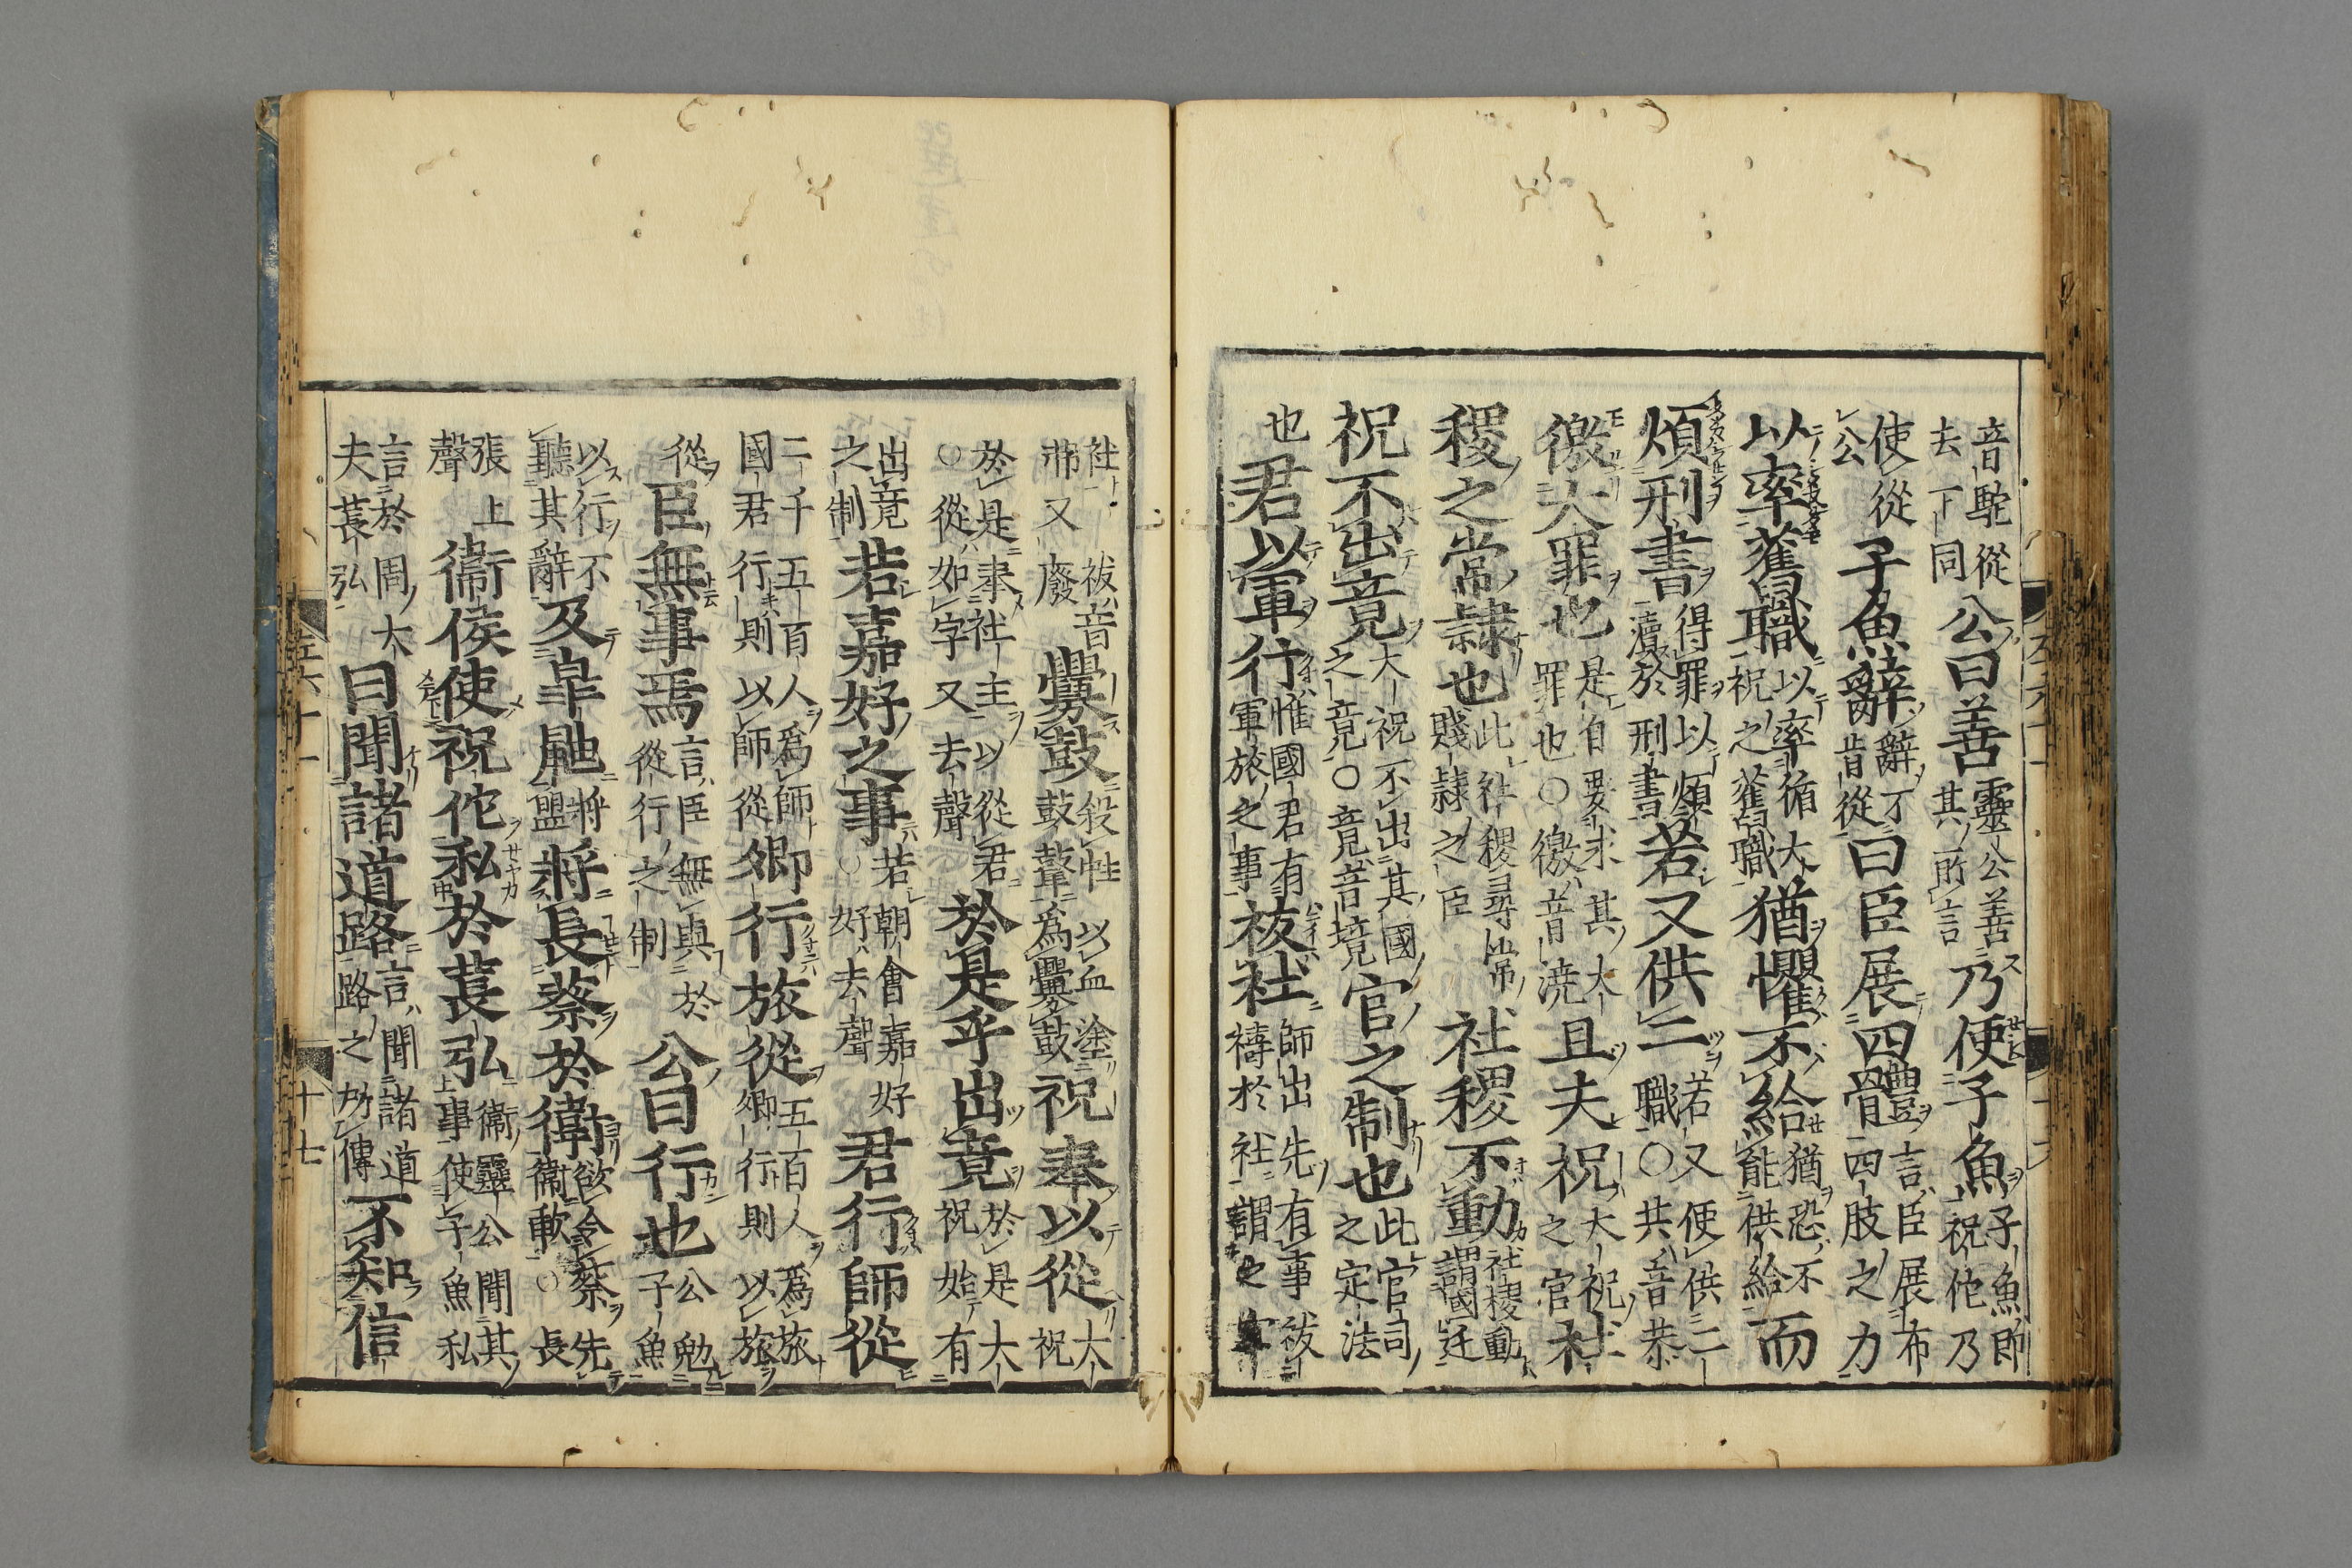 音駝從去下同公曰善靈公善其所言乃使子魚子魚即祝佗乃
使從公子魚辭辭不肯從曰臣展四體言臣展布四肢之力
以率舊職以率循大祝之舊職猶懼不給猶恐不能供給而
煩刑書得罪以煩瀆於刑書若又供二職若又使供二職○共音恭
徼大罪也是自要求其大罪也○徼音澆且夫祝大祝之官社
稷之常隷也此社稷尋常賤隷之臣社稷不動社稷動謂國迁
祝不出竟大祝不出其國之竟○竟音境官之制也此官司之定法
也君以軍行惟國君有軍旅之事祓社師出先有事祓禱於社謂之宜
社祓音弗又廢釁鼓殺牲以血塗鼓鼙為釁鼓祝奉以從大祝
於是奉社主以從君○從如字又去聲於是乎出竟於是大祝始有
出竟之制若嘉好之事若朝會嘉好○好去聲君行師從
二千五百人為師國君行則以師從卿行旅從五百人為旅卿行則以旅
從臣無事焉言臣無與於從行之制公曰行也公勉子魚
以行不聽其辭及皐鼬將盟將長蔡於衛欲令蔡先衛歃○長
張上聲衞侯使祝佗私於萇弘衞靈公聞其事使子魚私
言於周大夫萇弘曰聞諸道路言聞諸道路之所傳不知信
十七